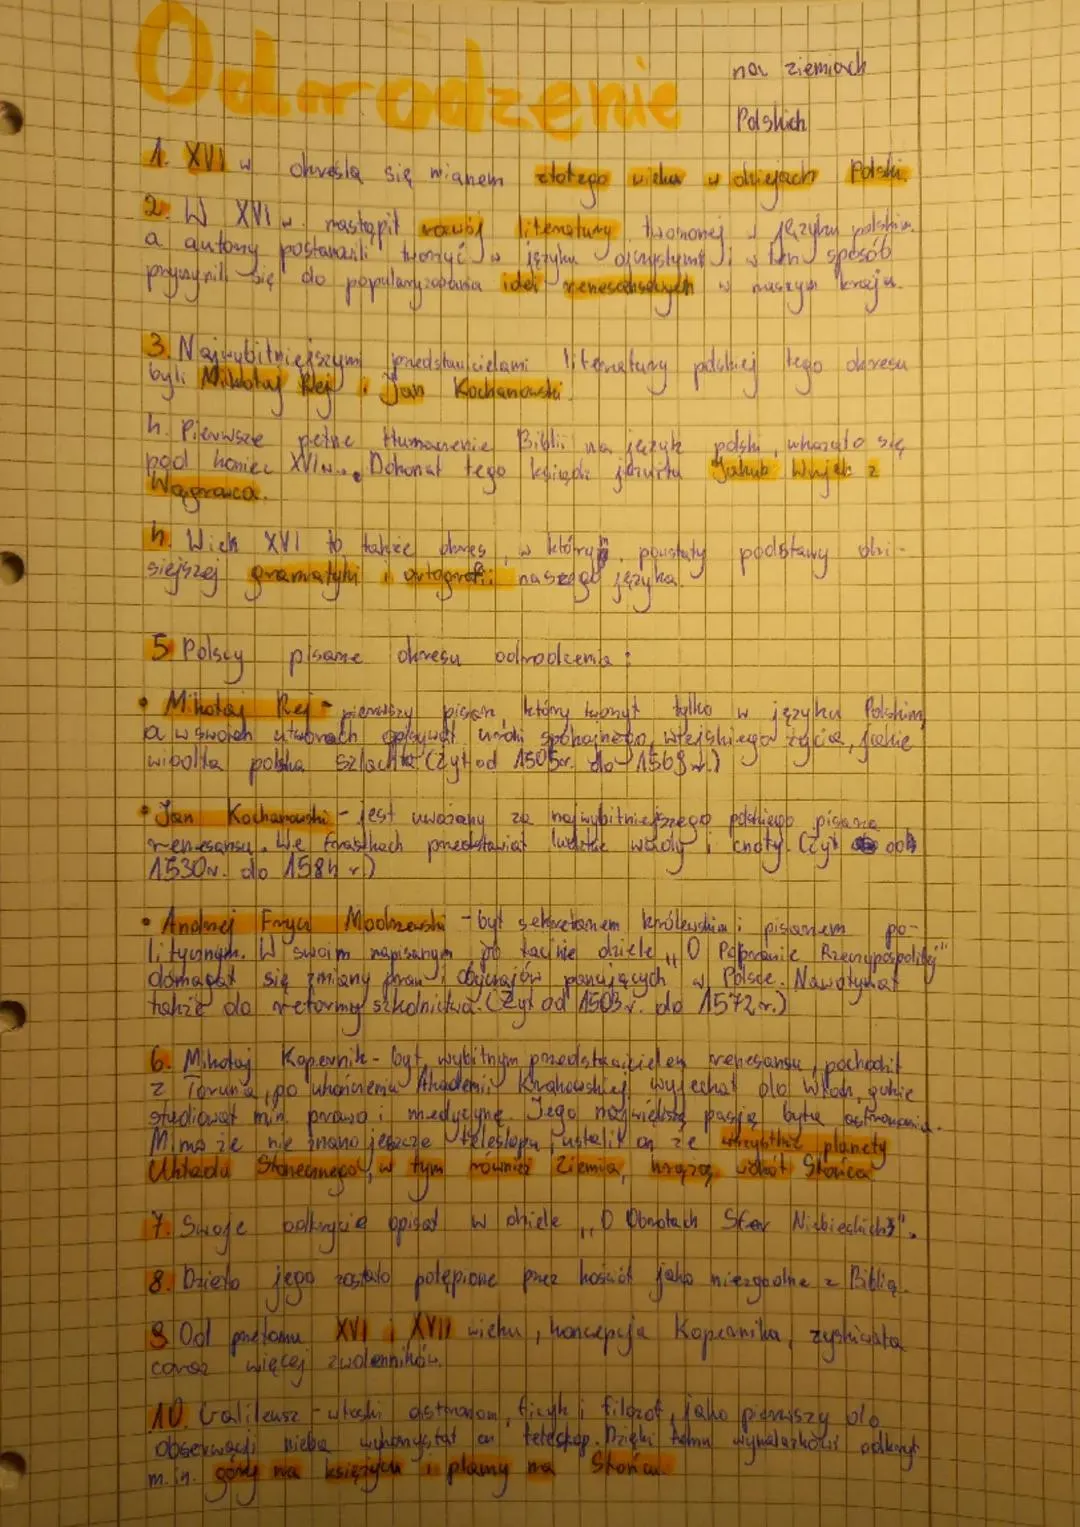 Odrodzenie na ziemiach
Polskich
1. XVI w określa się mianem złotego wieku w dziejach Polski.
2. W XVI w. nastąpił rozwój literatury tworzonej w języku polskim
a autorzy postanowili tworzyć w języku ojczystym i w ten sposób
przyczynili się do popularyzowania idei renesansowych w naszym kraju.
3. Najwybitniejszymi przedstawicielami literatury polskiej tego okresu
byli Mikołaj Rej i Jan Kochanowski.
4. Pierwsze pełne tłumaczenie Biblii na język polski, ukazało się
pod koniec XVI w. Dokonał tego ksiądz jezuita Jakub Wujek z
Wągrowca.
4. Wiek XVI to także okres, w którym powstały podstawy dzi-
siejszej gramatyki i ortografii naszego języka.
5 Polscy pisarze okresu odrodzenia:
• Mikołaj Rej - pierwszy pisarz, który tworzył tylko w języku Polskim,
a w swoich utworach opisywał uroki spokojnego, wiejskiego życia, jakie
wiodła polska szlachta (żył od 1505r. do 1569 r.)
• Jan Kochanowski - jest uważany za najwybitniejszego polskiego pisarza
renesansu. We fraszkach przedstawiał ludzkie wady i cnoty. (żył od
1530r. do 1584 r.)
• Andrzej Frycz Modrzewski - był sekretarzem królewskim i pisarzem po-
litycznym. W swoim napisanym po łacinie dziele „O Poprawie Rzeczypospolitej"
domagał się zmiany praw i obyczajów panujących w Polsce. Nawoływał
także do reformy szkolnictwa. (Żył od 1503 r. do 1572 r.)
6. Mikołaj Kopernik - był wybitnym przedstawicielem renesansu, pochodził
z Torunia, po ukończeniu Akademii Krakowskiej wyjechał do Włoch, gdzie
studiował min. prawo i medycynę. Jego największą pasją była astronomia.
Mimo że nie znano jeszcze teleskopu, ustalił on że wszystkie planety
Układu Słonecznego, w tym również Ziemia, krążą wokół Słońca
7. Swoje odkrycie opisał w dziele „O Obrotach Sfer Niebieskich".
8. Dzieło jego zostało potępione przez kościół jako niezgodne z Biblią.
9 Od przełomu XVI i XVII wieku, koncepcja Kopernika, zyskiwała
coraz więcej zwolenników.
10. Galileusz - włoski astronom, fizyk i filozof, jako pierwszy do
obserwacji nieba wykorzystał on teleskop. Dzięki temu wynalazkowi odkrył
m.in. góry na księżycu i plamy na Słońcu.